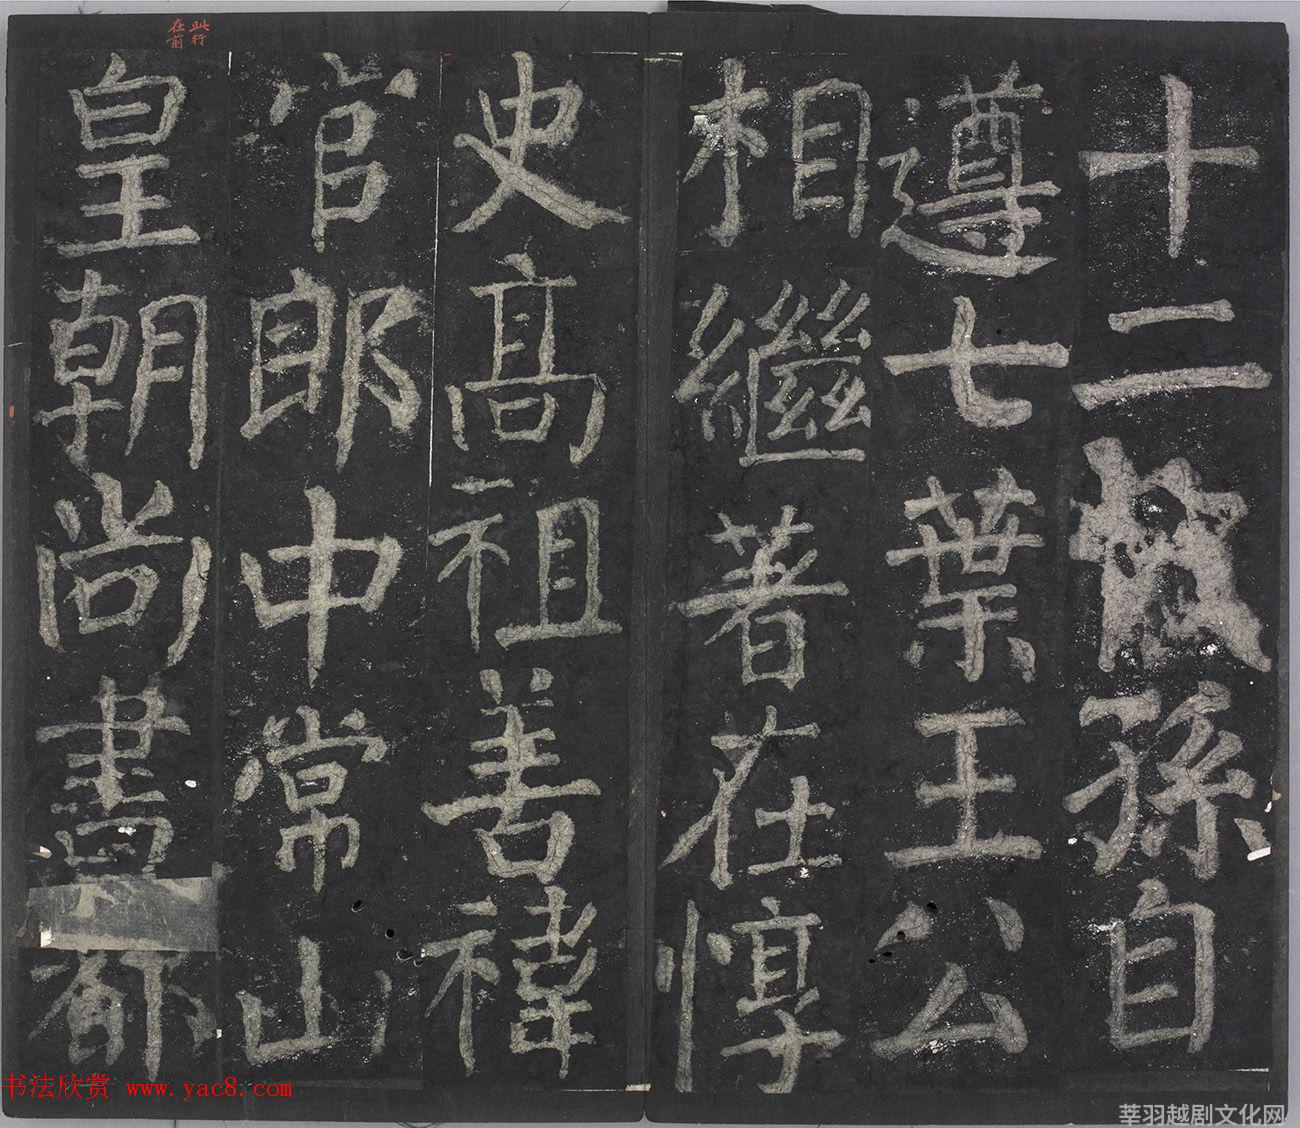 十二孫自
遵七葉王公
相繼著在惇
史高祖善禕
官郎中常山
皇朝尚書都
此行
在前
书法欣赏 www.yac8.com
莘羽越剧文化网